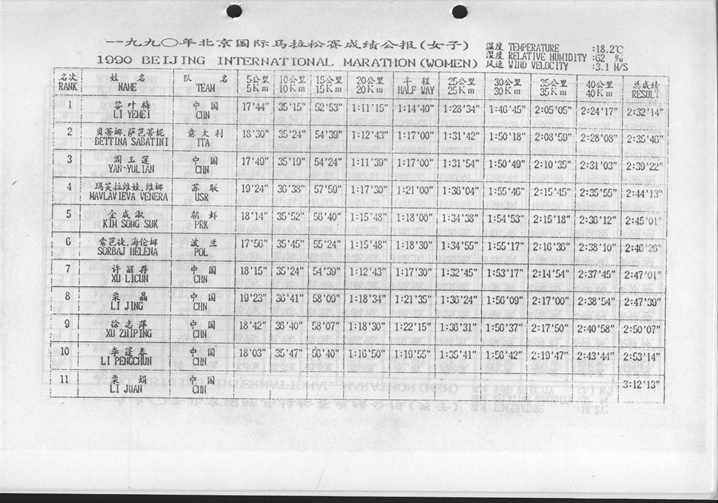 一九九〇年北京国际马拉松赛成绩公报(女子)
1990 BEIJING INTERNATIONAL MARATHON(WOMEN)
温度 TEMPERATURE :18.2℃
湿度 RELATIVE HUMIDITY :62 %
风速 WIND VELOCITY :3.1 M/S
名次 姓 名 队 名 5公里 10公里 15公里 20公里 半 程 25公里 30公里 35公里 40公里 总成绩
RANK NAME TEAM 5Km 10Km 15Km 20Km HALF WAY 25Km 30Km 35Km 40Km RESULT
1 李叶梅 中 国 17'44" 35'15" 52'53" 1:11'15" 1:14'40" 1:28'34" 1:46'45" 2:05'05" 2:24'17" 2:32'14"
LI YEMEI CHN
2 贝蒂娜.萨芭蒂妮 意大利 18'30" 35'24" 54'39" 1:12'43" 1:17'00" 1:31'42" 1:50'18" 2:08'59" 2:28'08" 2:35'46"
BETTINA SABATINI ITA
3 闫玉莲 中 国 17'49" 35'19" 54'24" 1:11'39" 1:17'00" 1:31'54" 1:50'49" 2:10'35" 2:31'03" 2:39'22"
YAN-YULIAN CHN
4 玛芙拉维娃.维娜 苏 联 19'24" 38'38" 57'59" 1:17'30" 1:21'00" 1:36'04" 1:55'46" 2:15'45" 2:35'55" 2:44'13"
MAVLAVIEVA VENERA USR
5 金成淑 朝 鲜 18'14" 35'52" 56'40" 1:15'48" 1:18'00" 1:34'38" 1:54'53" 2:15'18" 2:36'12" 2:45'01"
KIM SONG SUK PRK
6 索芭捷.海伦娜 波 兰 17'56" 35'45" 55'24" 1:15'48" 1:18'30" 1:34'55" 1:55'17" 2:16'36" 2:38'10" 2:46'26"
SORBAJ HELENA POL
7 许丽存 中 国 18'15" 35'24" 54'39" 1:12'43" 1:17'30" 1:32'45" 1:53'17" 2:14'54" 2:37'45" 2:47'01"
XU LICUN CHN
8 栗 晶 中 国 19'23" 36'41" 58'09" 1:18'34" 1:21'35" 1:36'24" 1:56'09" 2:17'00" 2:38'54" 2:47'39"
LI JING CHN
9 徐志萍 中 国 18'42" 36'40" 58'07" 1:18'30" 1:22'15" 1:36'31" 1:56'37" 2:17'50" 2:40'58" 2:50'07"
XU ZHIPING CHN
10 李蓬春 中 国 18'03" 35'47" 56'40" 1:16'50" 1:19'55" 1:35'41" 1:56'42" 2:19'47" 2:43'44" 2:53'14"
LI PENGCHUN CHN
11 栗 娟 中 国 3:12'13"
LI JUAN CHN